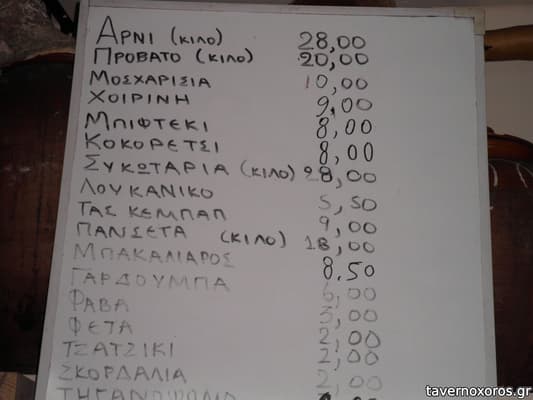 ΑΡΝΙ (κιλο) 28,00
ΠΡΟΒΑΤΟ (κιλο) 20,00
ΜΟΣΧΑΡΙΣΙΑ 10,00
ΧΟΙΡΙΝΗ 9,00
ΜΠΙΦΤΕΚΙ 8,00
ΚΟΚΟΡΕΤΣΙ 8,00
ΣΥΚΩΤΑΡΙΑ (κιλο) 28,00
ΛΟΥΚΑΝΙΚΟ 5,50
ΤΑΣ ΚΕΜΠΑΠ 9,00
ΠΑΝΣΕΤΑ (κιλο) 18,00
ΜΠΑΚΑΛΙΑΡΟΣ 8.50
ΓΑΡΔΟΥΜΠΑ 6,00
ΦΑΒΑ 3,00
ΦΕΤΑ 2,00
ΤΖΑΤΖΙΚΙ 2,00
ΣΚΟΡΔΑΛΙΑ 2,00
tavernoxoros.gr